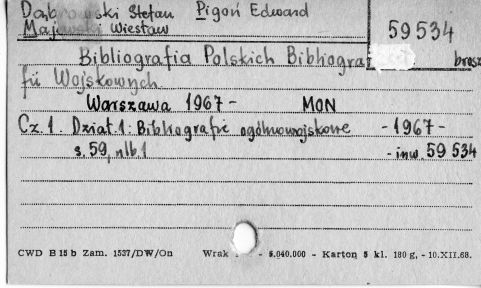 Dąbrowski Stefan Pigoń Edward
Majewski Wiesław
59 534
Bibliografia Polskich Bibliogra
brosz
fii Wojskowych
Warszawa 1967 - MON
Cz. 1. Dział 1: Bibliografie ogólnowojskowe - 1967 -
s. 59, nlb. 1 - inw. 59 534
CWD B 15 b Zam. 1537/DW/On Wrak - 5.040.000 - Karton 5 kl. 180 g. - 10.XII.68.